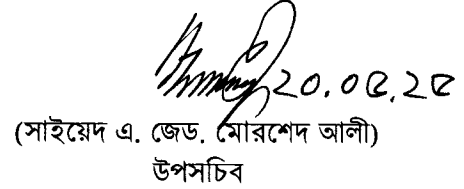 ২০.০৫.২৫
(সাইয়েদ এ. জেড. মোরশেদ আলী)
উপসচিব